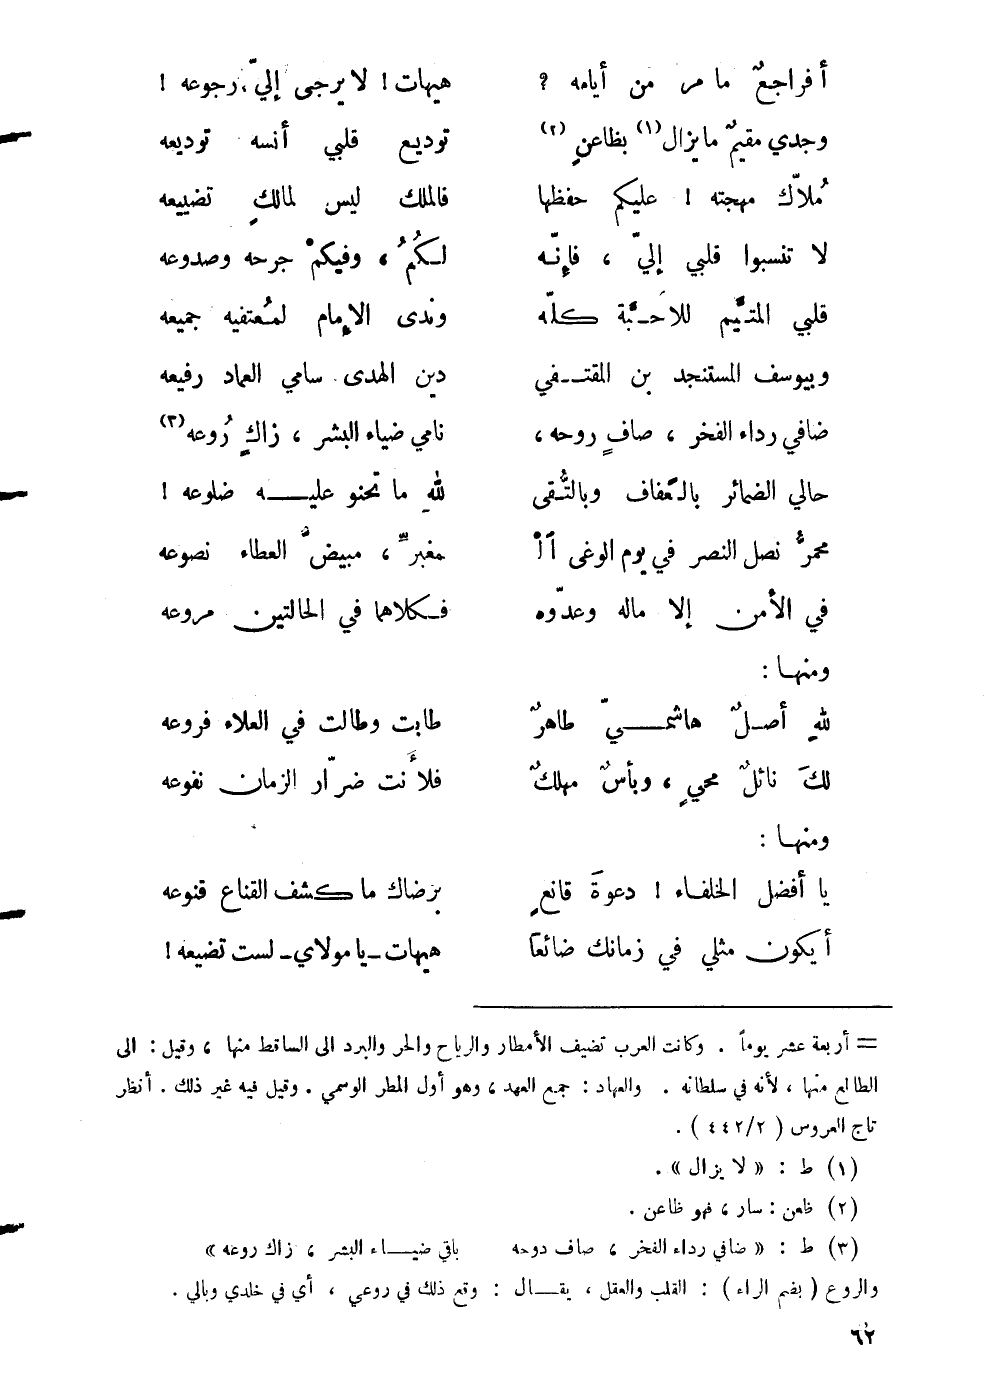 أفراجعٌ ما مر من أيامه ؟ هيهات ! لا يرجى إليّ رجوعه !
وجدي مقيمٌ ما يزال(١) بظاعنٍ(٢) توديع قلبي أنسه توديعه
مُلاّك مهجته ! عليكم حفظها فالملك ليس لمالكٍ تضييعه
لا تنسبوا قلبي إليّ ، فإنّه لكُمُ ، وفيكمْ جرحه وصدوعه
قلبي المتيَّم للأحبَّة كلّه وندى الإمام لمُعتفيه جميعه
وبيوسف المستنجد بن المقتفي دين الهدى سامي العماد رفيعه
ضافي رداء الفخر ، صافٍ روحه ، نامي ضياء البشر ، زاكٍ رُوعه(٣)
حالي الضمائر بالعَفاف وبالتُّقى للهِ ما تحنو عليه ضلوعه !
محمرُّ نصل النصر في يوم الوغى اَلْـ ـمغبرِّ ، مبيضُّ العطاء نصوعه
في الأمن إلا ماله وعدوّه فكلاهما في الحالتين مروعه
ومنها :
للهِ أصلٌ هاشميّ طاهرٌ طابت وطالت في العلاء فروعه
لكَ نائلٌ محيٍ ، وبأسٌ مهلكٌ فلأنت ضرّار الزمان نفوعه
ومنها :
يا أفضل الخلفاء ! دعوةَ قانعٍ برضاك ما كشف القناع قنوعه
أيكون مثلي في زمانك ضائعاً هيهات ـ يا مولاي ـ لست تضيعه !
= أربعة عشر يوماً . وكانت العرب تضيف الأمطار والرياح والحر والبرد الى الساقط منها ، وقيل : الى
الطالع منها ، لأنه في سلطانه . والعهاد : جمع العهد ، وهو أول المطر الوسمي . وقيل فيه غير ذلك . أنظر
تاج العروس ( ٤٤٢/٢ ) .
(١) ط : « لا يزال » .
(٢) ظعن : سار ، فهو ظاعن .
(٣) ط : « ضافي رداء الفخر ، صاف دوحه باقي ضياء البشر ، زاك روعه »
والروع ( بضم الراء ) : القلب والعقل ، يقال : وقع ذلك في روعي ، أي في خلدي وبالي .
٦٢